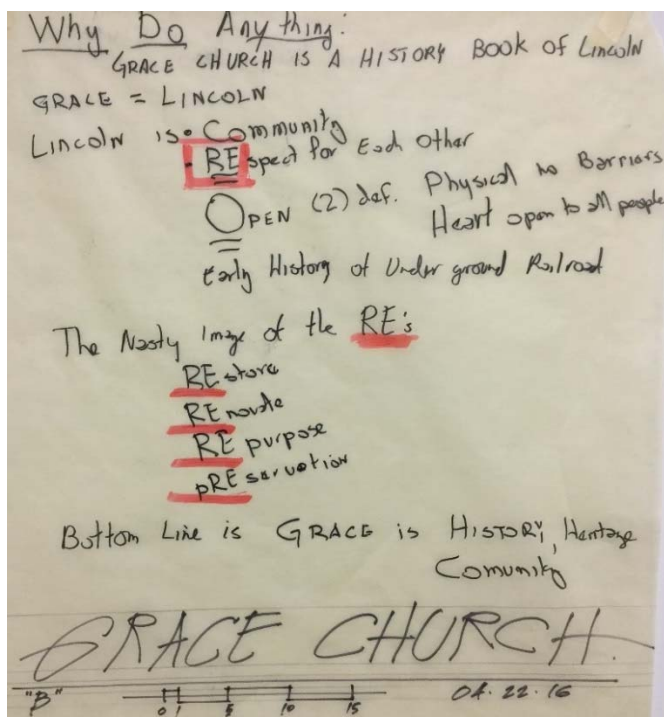 Why Do Anything:
GRACE CHURCH IS A HISTORY BOOK OF LINCOLN
GRACE = LINCOLN
LINCOLN IS • Community
- REspect for Each Other
OPEN (2) def. Physical no Barriors
Heart open to all people
Early History of Underground Railroad
The Nasty Image of the RE's
REstore
RENovate
REpurpose
pREservation
Bottom Line is GRACE is HISTORY, Heritage
Comunity
GRACE CHURCH.
"B"
0 1 5 10 15
04.22.16